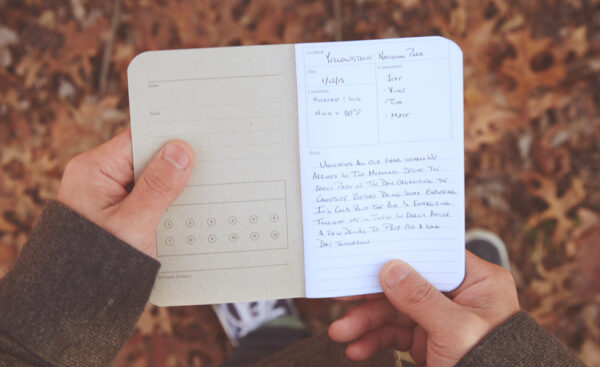 Name
Location YELLOWSTONE NATIONAL PARK
Date
Companions
- JEFF
- VINCE
- TIM
- MATT
Conditions
HIGH = 30°F
Notes
UNLOADING ALL OUR GEAR WHEN WE
ARRIVED IN THE MORNING. SPENT THE
EARLY PART OF THE DAY ORGANIZING THE
CAMPSITE BEFORE DOING SOME EXPLORING.
IT'S COLD, BUT THE AIR IS ENERGIZING.
TONIGHT WE'LL TURN IN EARLY AFTER
A FEW DRINKS TO PREP FOR A LONG
DAY TOMORROW.
1 2 3 4 5 6
7 8 9 10 11 12